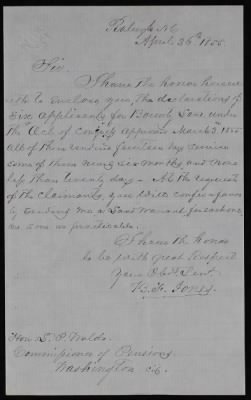 Raleigh N.C.
April 26th 1855.
Sir.
I have the honor herew
ith to enclose you, the declarations of
Six applicants for Bounty Land under
the Act of Congress approved March 3. 1855
all of them rendering fourteen days service
some of them being six months and none
less than twenty days — At the request
of the claimants, you will confer a favor
by sending me a Land Warrant for each one
as soon as practicable.
I have the honor
to be with great Respect
Your Obdt Servt.
Jones.
Hon. L. P. Waldo.
Commissioner of Pensions.
Washington City.